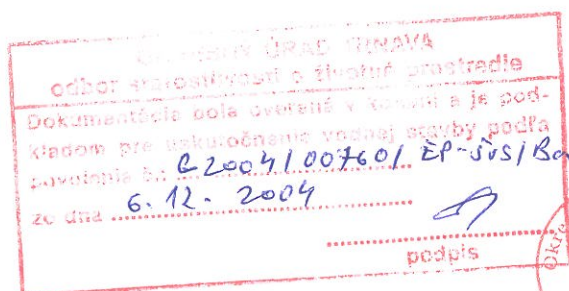 ÚRAD TRNAVA
odbor starostlivosti o životné prostredie
Dokumentácia bola overená v konaní a je pod-
kladom pre uskutočnenie vodnej stavby podľa
povolenia čo G2004/00760/ ŽP-ŠVS/Bo
zo dňa 6.12. 2004
podpis
Okre